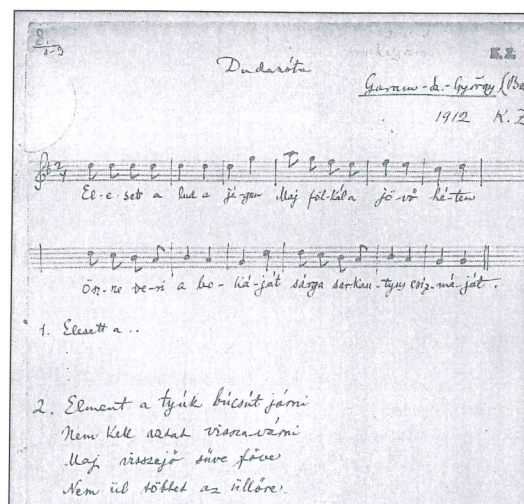 2.
1-3
K.Z
Dudanóta
Garam-sz.-György (Ba
1912 K.Z
El-e-sett a lud a jé-gen Maj föl-kel a jö-vő hé-ten
Ösz-sze ve-ri a bo-ká-ját sárga sarkan-tyus csiz-má-ját.
1. Elesett a ..
2. Elment a tyúk búcsút járni
Nem kell aztat vissza várni
Maj visszajő süve főve
Nem ül többet az üllőre.